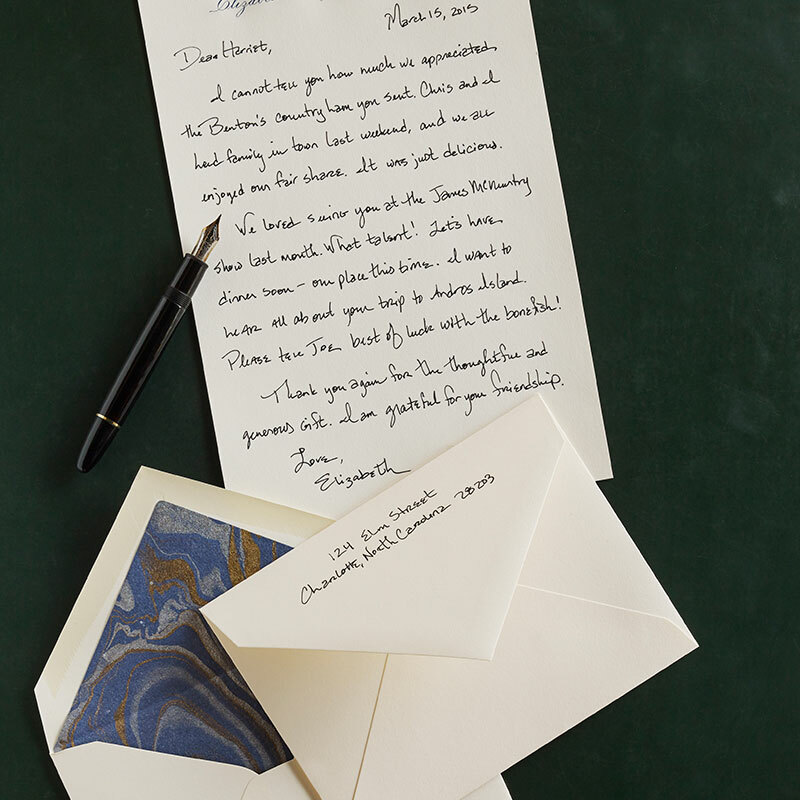 Elizabeth
March 15, 2015
Dear Harriet,
I cannot tell you how much we appreciated
the Benton's country ham you sent. Chris and I
had family in town last weekend, and we all
enjoyed our fair share. It was just delicious.
We loved seeing you at the James McMurtry
show last month. What talent! Let's have
dinner soon – our place this time. I want to
hear all about your trip to Andros Island.
Please tell Joe best of luck with the bonefish!
Thank you again for the thoughtful and
generous gift. I am grateful for your friendship.
Love,
Elizabeth
124 Elm Street
Charlotte, North Carolina 28203